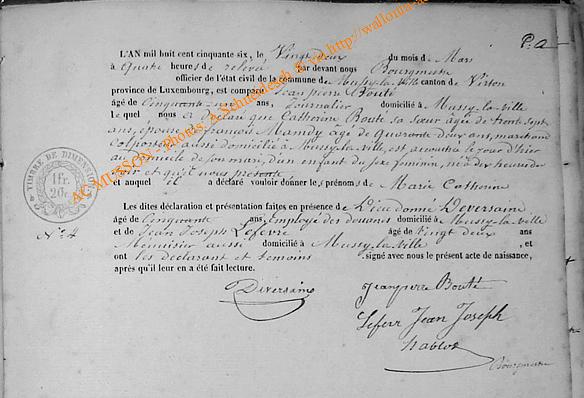 P. a
L'AN mil huit cent cinquante six, le Vingt deux du mois de Mars
à quatre heures de relevé par devant nous Bourgmestre
officier de l'état civil de la commune de Mussy-la-ville canton de Virton
province de Luxembourg, est comparu Jean pierre Bouté
âgé de Cinquante une ans, Journalier domicilié à Mussy-la-ville
lequel nous a déclaré que Catherine Bouté sa sœur âgé de trente sept
ans, épouse de françois Mamdy âgé de Quarante deux ans, marchand
colporteur aussi domicilié à Mussy-la-ville, est accouchée le jour d'hier
au Domicile de son mari, d'un enfant du sexe feminin, né à dix heures du
soir et qu'il nous présente
et auquel il a déclaré vouloir donner les prénoms de Marie Catherine
Les dites déclaration et présentation faites en présence de Dieu donné Diversaine
âgé de Cinquante ans, Employé des douanes domicilié à Mussy-la-ville
N° 4 et de Jean Joseph Lefevre âgé de Vingt deux ans
Menuisier aussi domicilié à Mussy-la-ville, et
ont les déclarant et témoins signé avec nous le présent acte de naissance,
après qu'il leur en a été fait lecture.
Diversaine
Jeanpierre Bouté
Lefevr Jean Joseph
Bourgmestre
TIMBRE DE DIMENSION
1 Fr.
20 c.
AC MUSSON - Photos: A. Schmiedeseb & ce http://wallonia-a